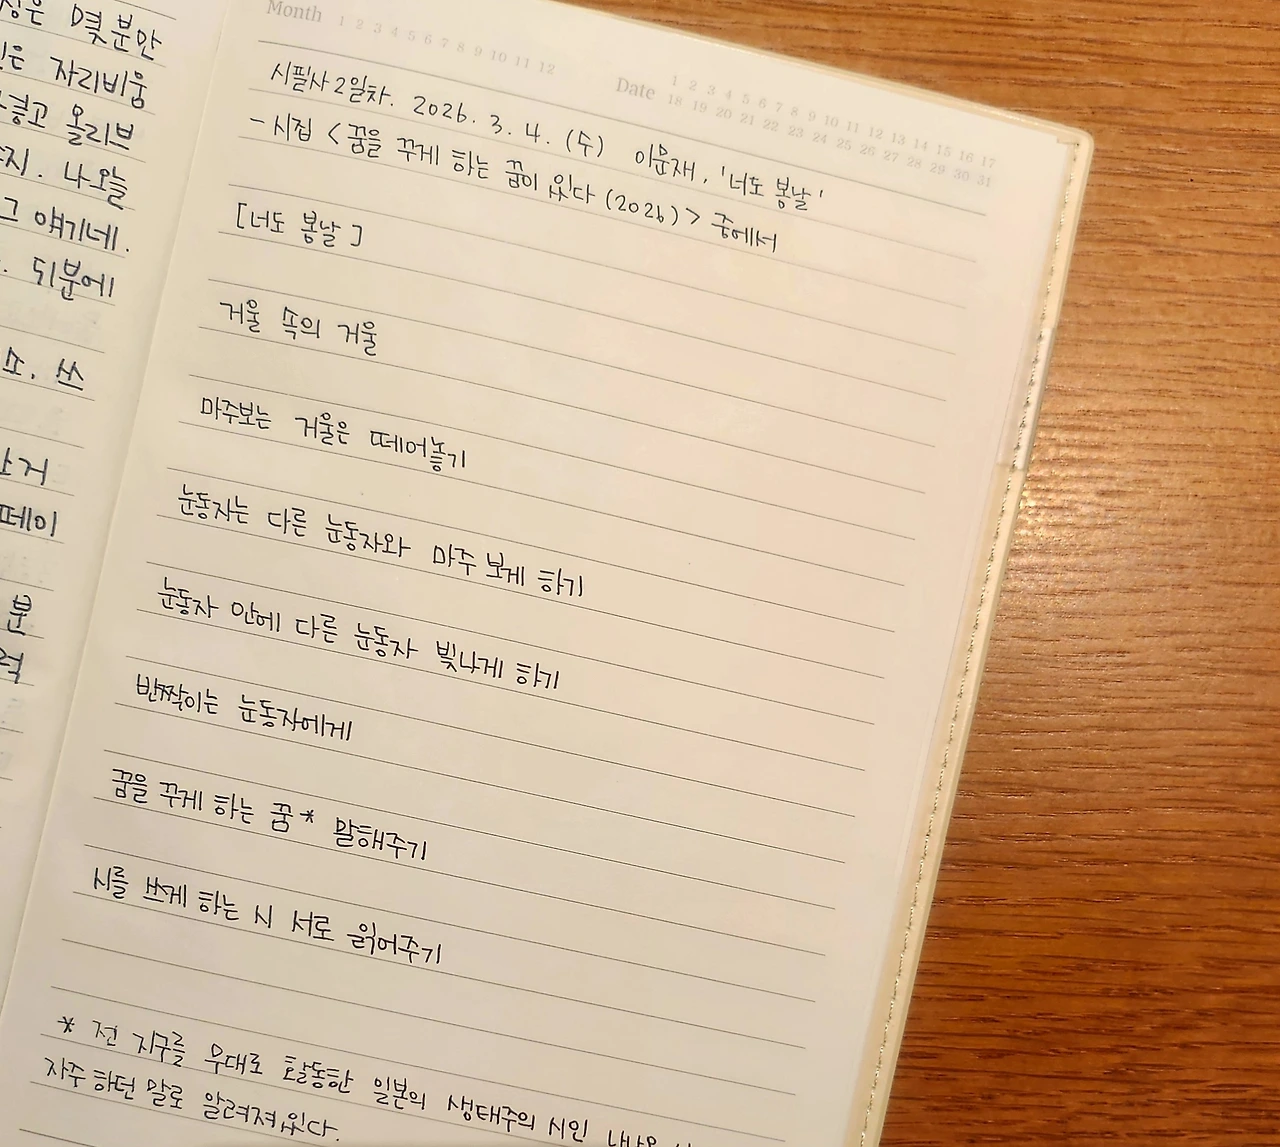 성은 몇 분만
자리비움
올리브
지. 나오늘
그 얘기네.
뒤분에
쇼. 쓰
떼이
분
력
Month 1 2 3 4 5 6 7 8 9 10 11 12
Date 1 2 3 4 5 6 7 8 9 10 11 12 13 14 15 16 17
18 19 20 21 22 23 24 25 26 27 28 29 30 31
시필사 2일차. 2026. 3. 4. (수) 이문재, '너도 봄날'
- 시집 <꿈을 꾸게 하는 꿈이 있다 (2026)> 중에서
[너도 봄날]
거울 속의 거울
마주보는 거울은 떼어놓기
눈동자는 다른 눈동자와 마주 보게 하기
눈동자 안에 다른 눈동자 빛나게 하기
반짝이는 눈동자에게
꿈을 꾸게 하는 꿈* 말해주기
시를 쓰게 하는 시 서로 읽어주기
* 전 지구를 무대로 활동한 일본의 생태주의 시인
자주 하던 말로 알려져있다.